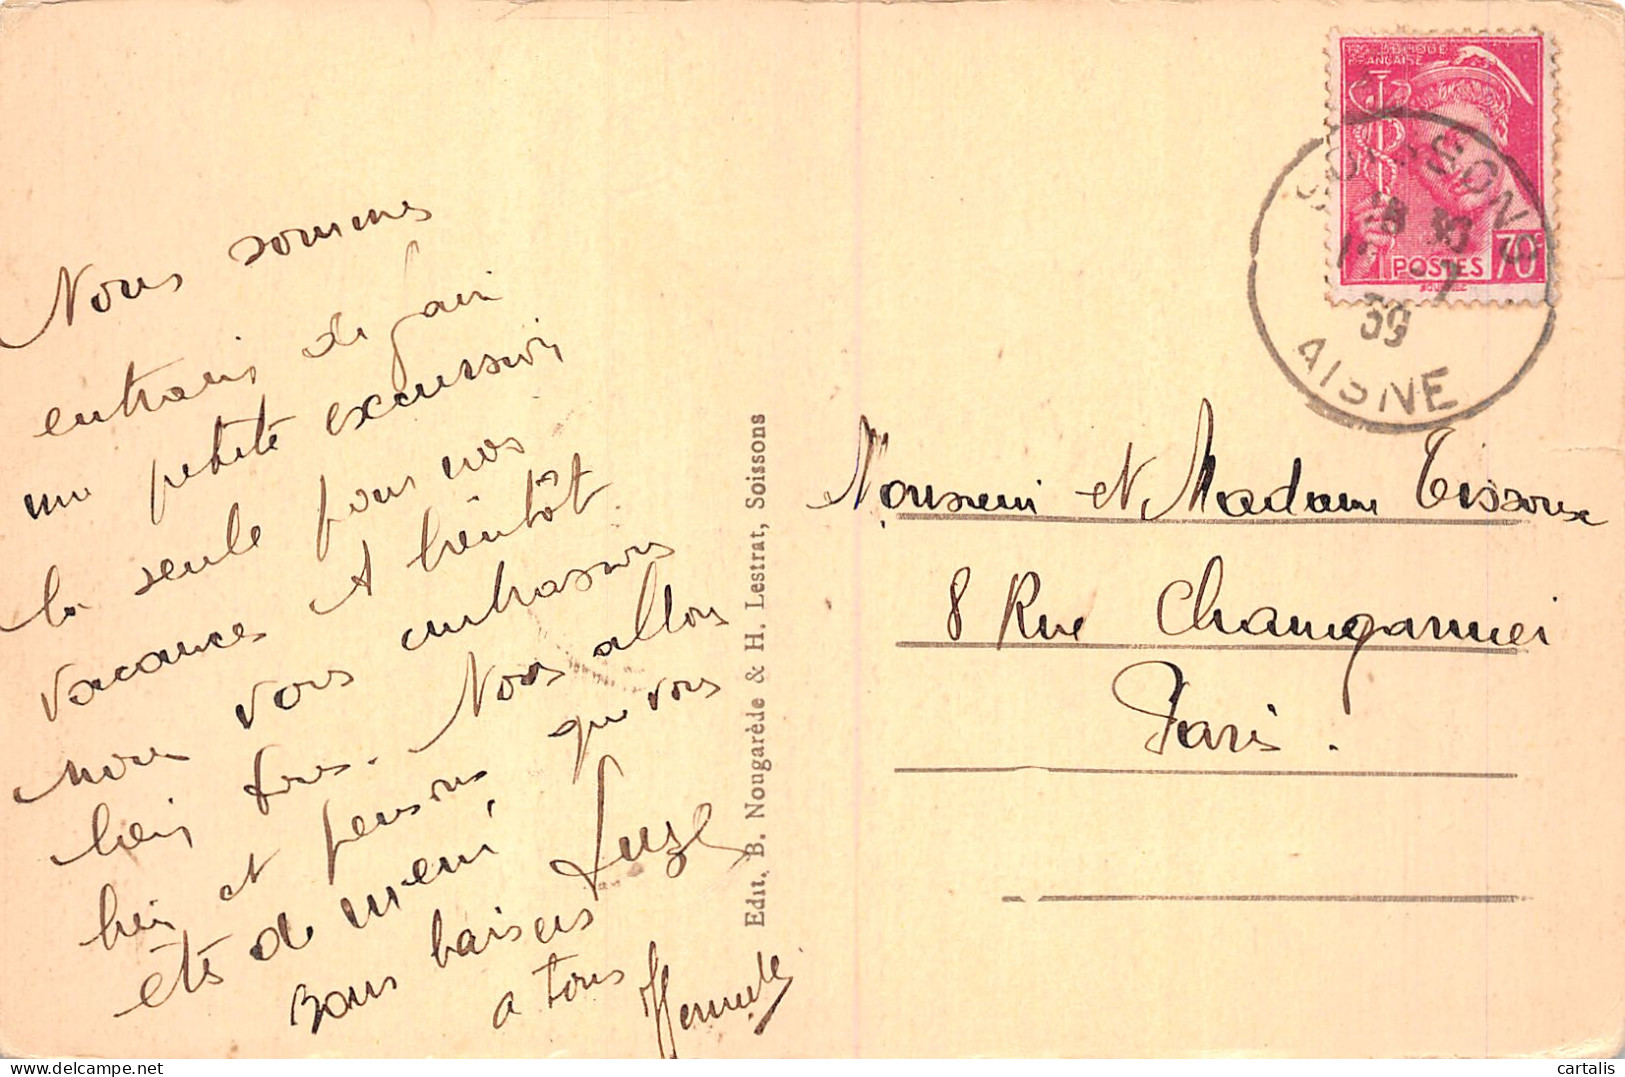 Nous sommes
entrain de fair
une petite excursion
la seule pour nos
vacances A bientôt
nous vous embrassons
bien fous. Nous allons
bien et pensons que vous
êts de meme
Bons baisers Suze
a tous
Edit, B. Nougarède & H. Lestrat, Soissons
RÉPUBLIQUE
FRANÇAISE
POSTES 70c
SOISSONS
18 30
-7
39
AISNE
Monsieur et Madame Tissoux
8 Rue Changarnier
Paris.
cartalis
delcampe.net